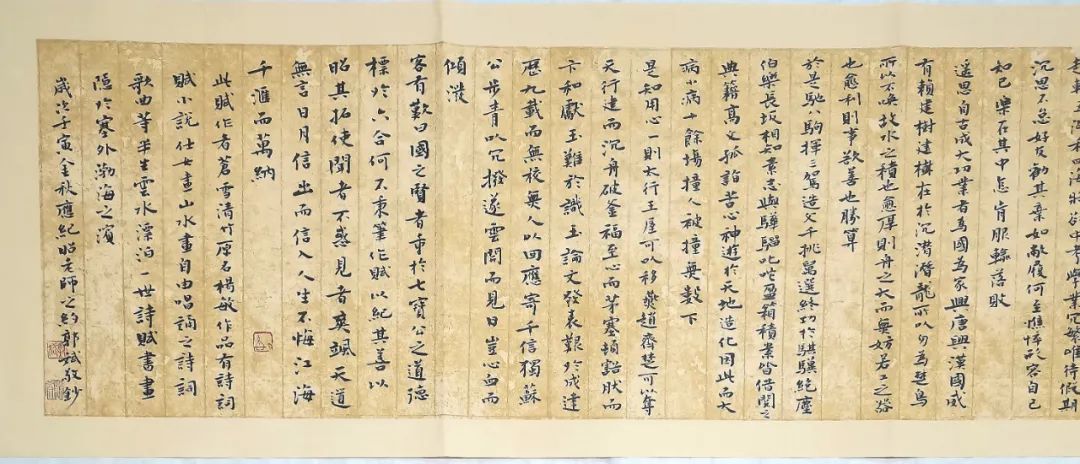 沉思不怠好友勸其棄如敝履何至憔悴形容自己
如己樂在其中怎肯服輸落馱
遥思自古成大功業者為國為家興唐興漢國威
有賴建樹建構在於沉潛潛龍所以勿為楚烏
所以不喚故水之積也愈厚則舟之大而無妨君之器
也愈利則事欲善也勝算
於是馳八駒揮三駕造父千挑駕選終功於騏驥絕塵
伯樂長坂相知素志與驊騮叱咤盈箱積案皆借閱之
典籍高文孤詣苦心神遊於天地造化因此而大
病小病十餘場撞人被撞無數下
是知用心一則太行王屋可以移燕趙齊楚可以奪
天行建而沉舟破釜福至心而茅塞頓豁肰而
卞和獻玉難於識玉論文發表艱於成建
歷九載而無校無人以回應寄千信獨蘇
公步青以冗撥遂雲開而見日豈心血而
傾潑
客有歎曰國之賢者市於七寶公之道德
標於六合何不秉筆作賦以紀其善以
昭其拓使聞者不惑見者爽颯天道
無言日月信出而信入人生不悔江海
千滙而萬納
此賦作者蒼雪清竹原名楊敏作品有詩詞
賦小說仕女畫山水畫自由唱誦之詩詞
歌曲等半生雲水漂泊一世詩賦書畫
隱於塞外渤海之濱
歲次壬寅金秋應紀昭老師之約郭斌敬鈔